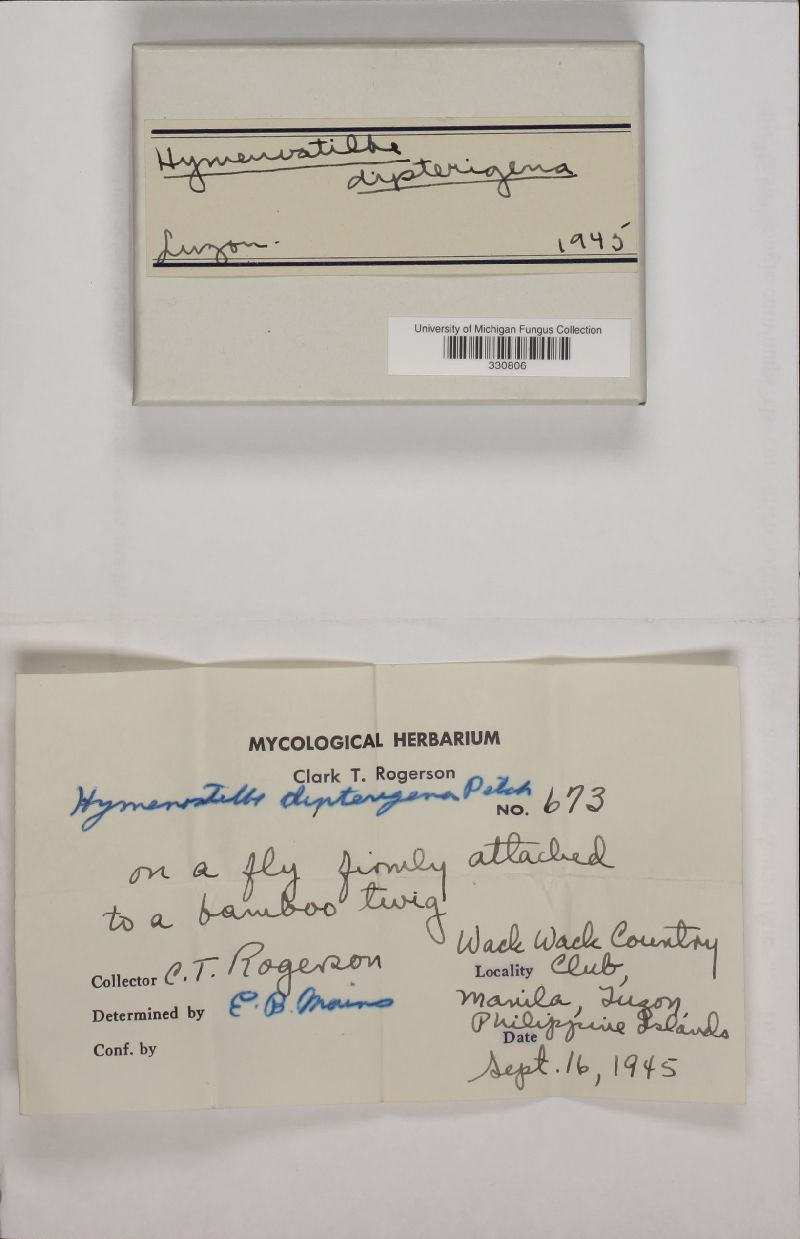 Hymenostilbe
dipterigena
Luzon.
1945
University of Michigan Fungus Collection
330806
MYCOLOGICAL HERBARIUM
Clark T. Rogerson
Hymenostilbe dipterigena Petch
NO. 673
on a fly firmly attached
to a bamboo twig
Collector C. T. Rogerson
Determined by E. B. Mains
Conf. by
Wack Wack Country
Locality Club,
Manila, Luzon,
Philippine Islands
Date
Sept. 16, 1945